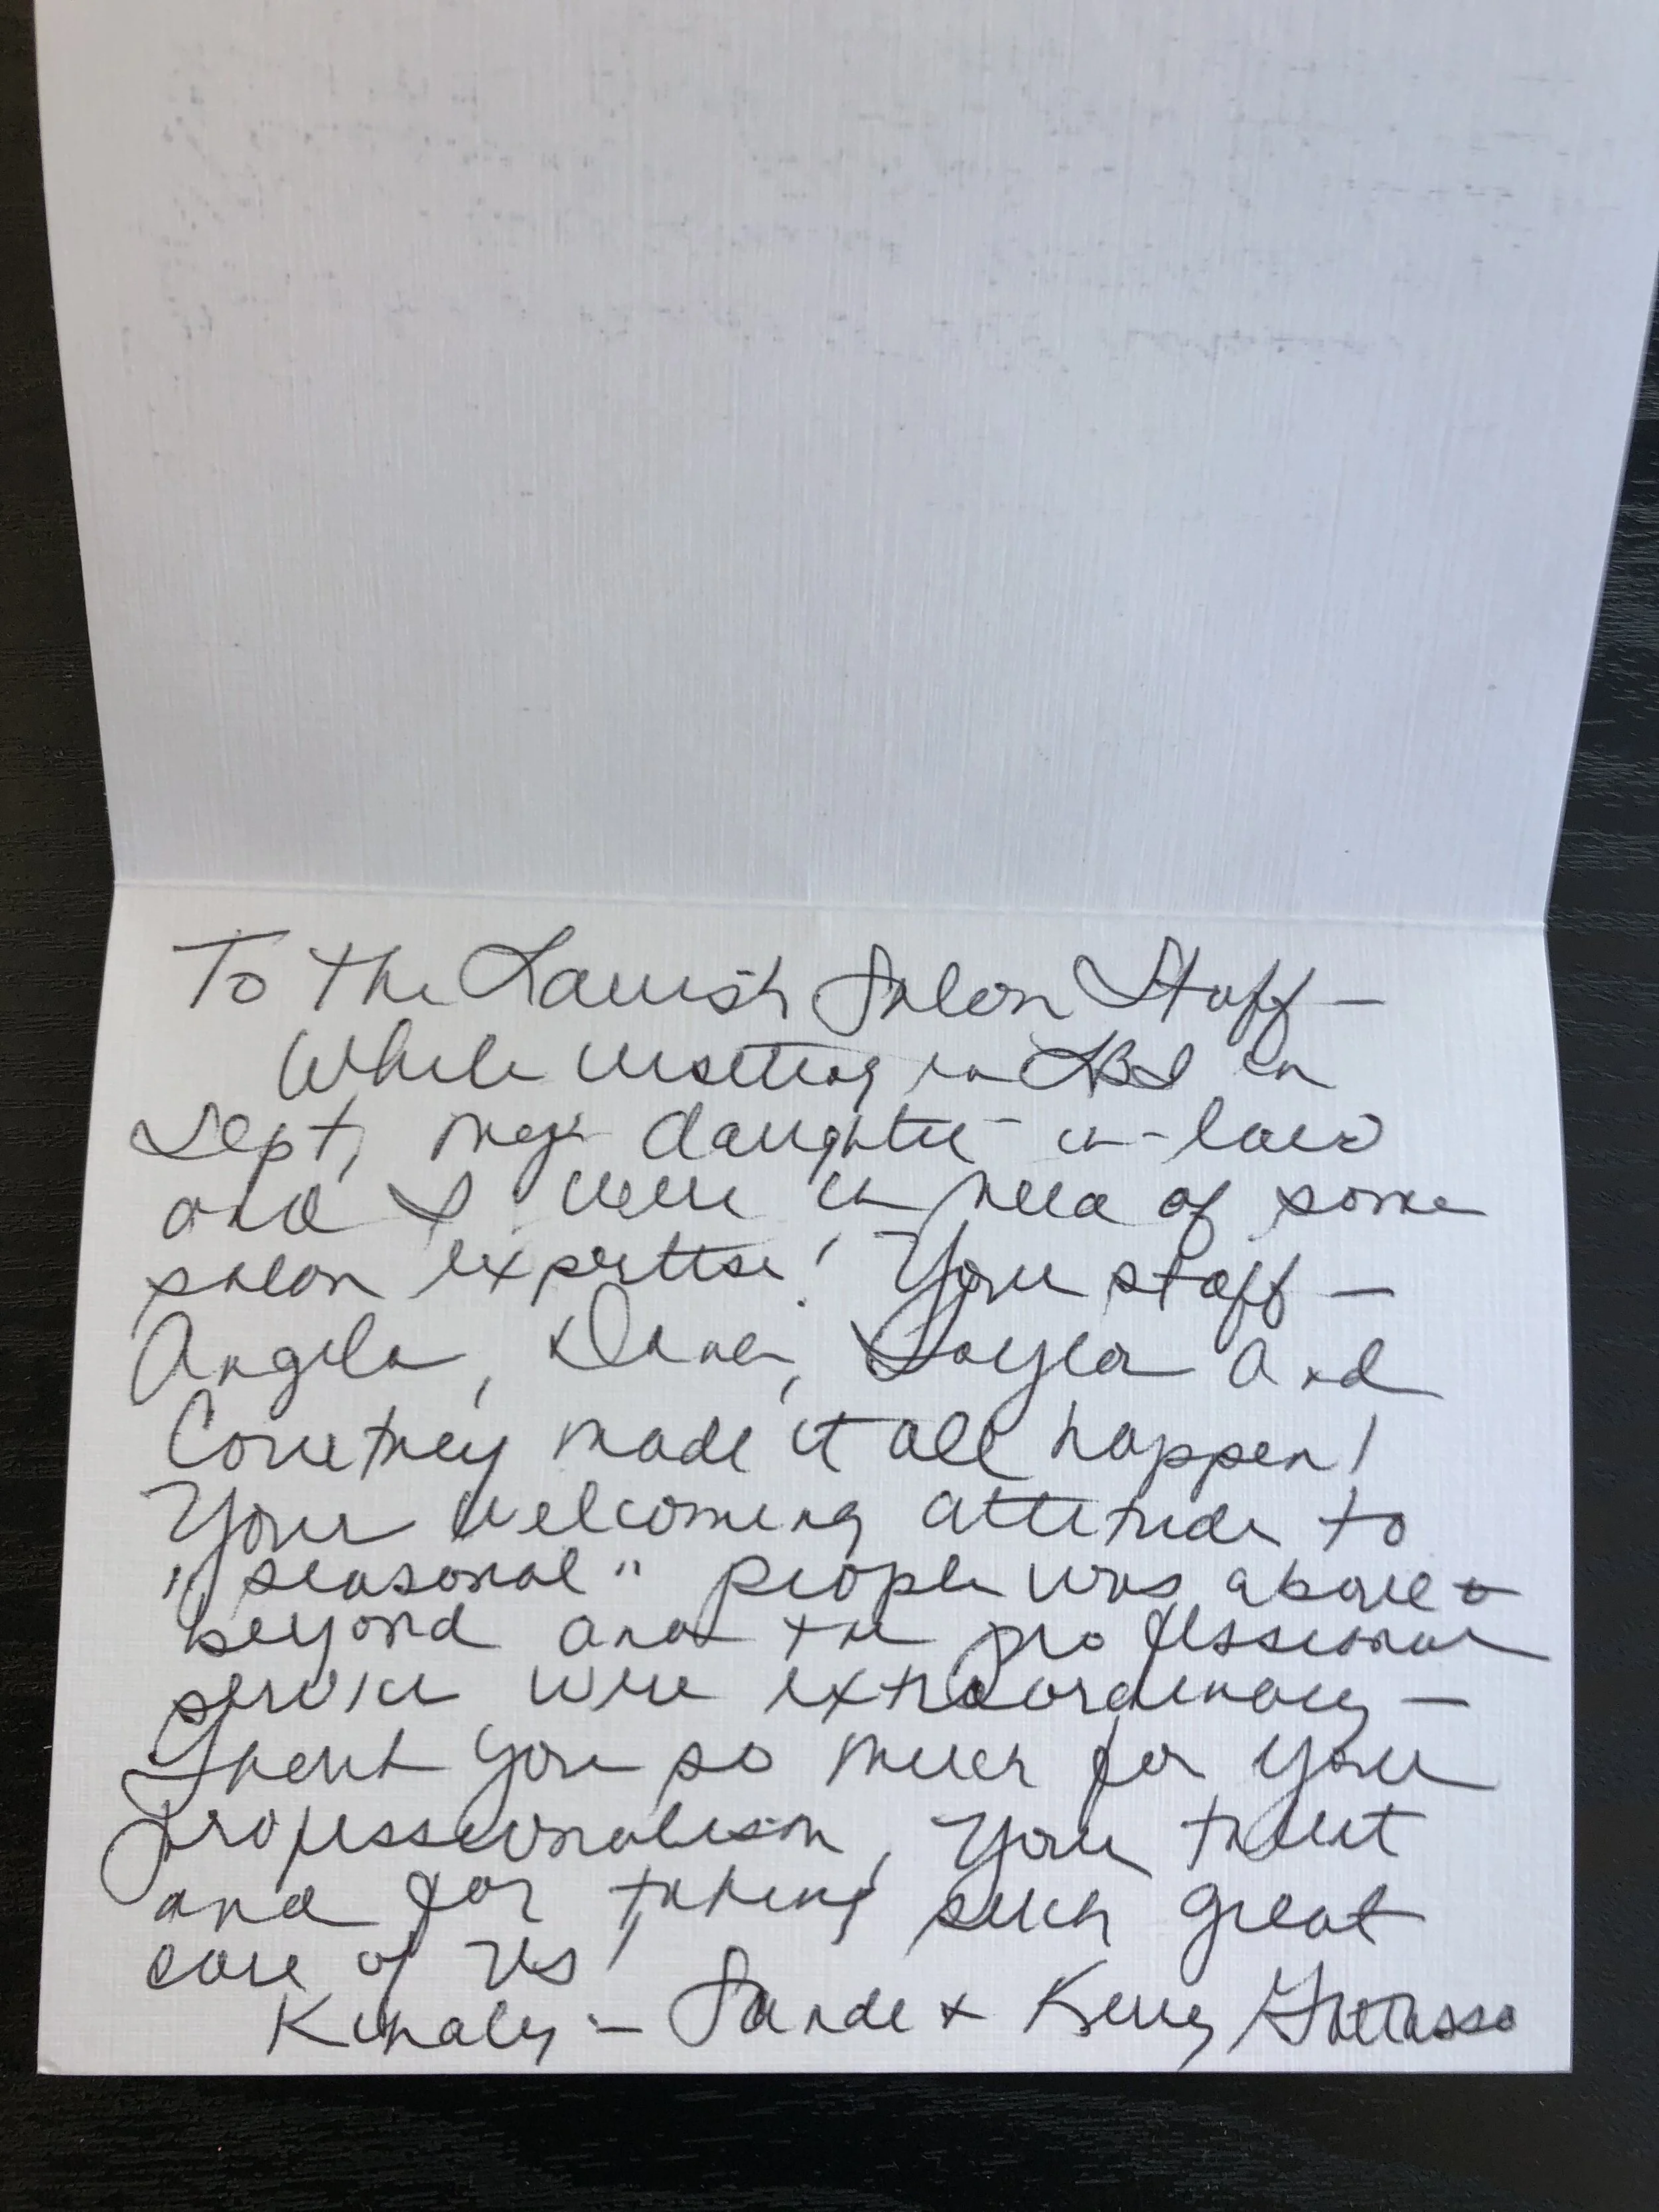 To the Lavish Salon Staff —
While visiting in LBI in
Sept, my daughter-in-law
and I were in need of some
salon expertise! Your staff —
Angela, Dane, Kayla and
Courtney made it all happen!
Your welcoming attitude to
"seasonal" people was above +
beyond and the professional
service were extraordinary —
Thank you so much for your
professionalism, your talent
and for taking such great
care of us!
Kindly — Sande + Kerry